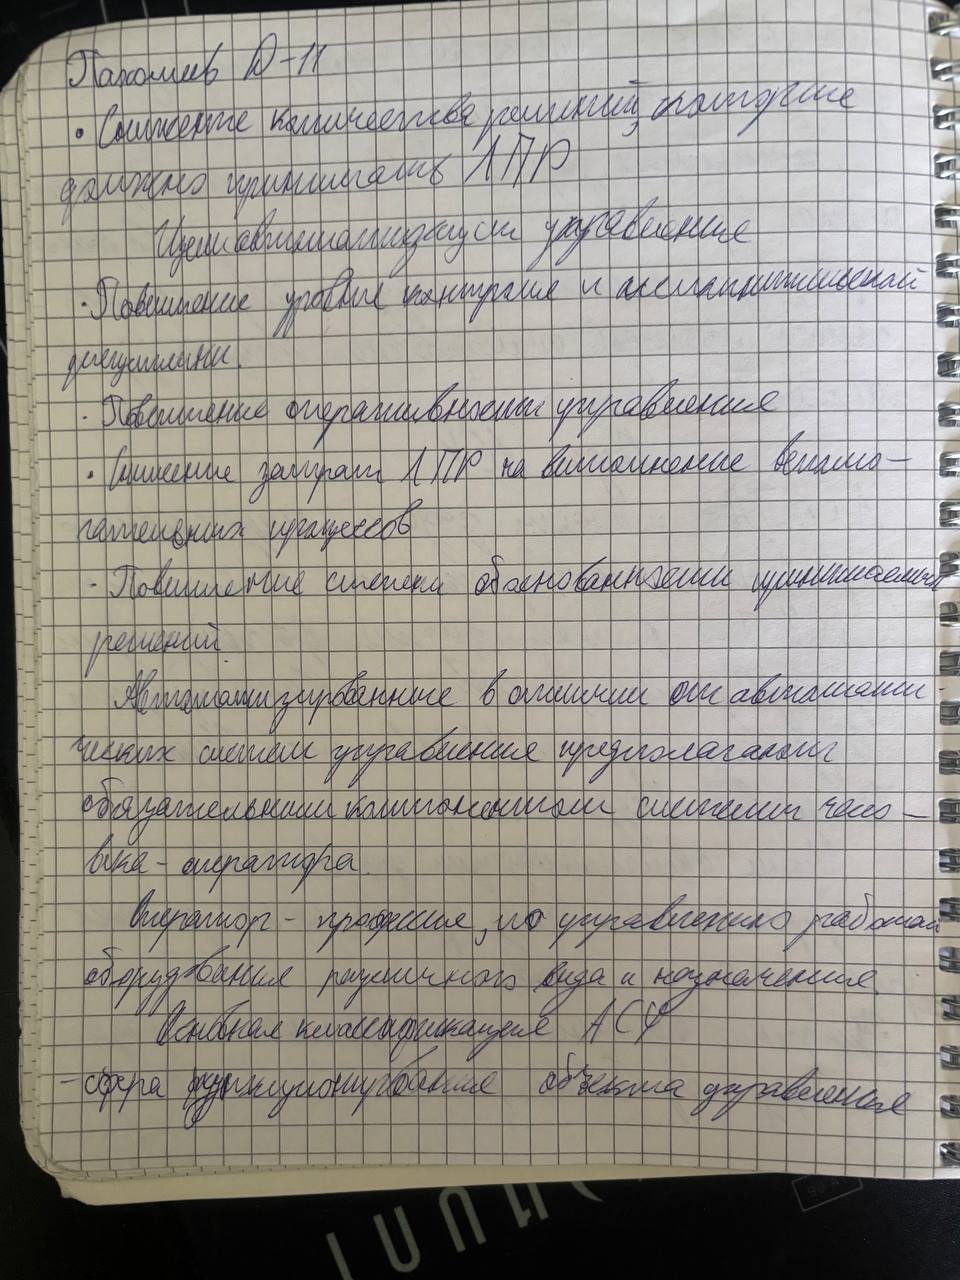 Пахомов D-11
• Снижение количества решений, которые
должно принимать ЛПР
Цели автоматизации управления
• Повышение уровня контроля и исполнительской
дисциплины.
• Повышение оперативности управления
• Снижение затрат ЛПР на выполнение вспомо-
гательных процессов
• Повышение степени обоснованности принимаемых
решений.
Автоматизированные в отличии от автомати-
ческих систем управления предполагают
обязательным компонентом системы чело-
века-оператора.
Оператор - профессия, по управлению работой
оборудования различного вида и назначения.
Основная классификация АСУ
- сфера функционирования объекта управления